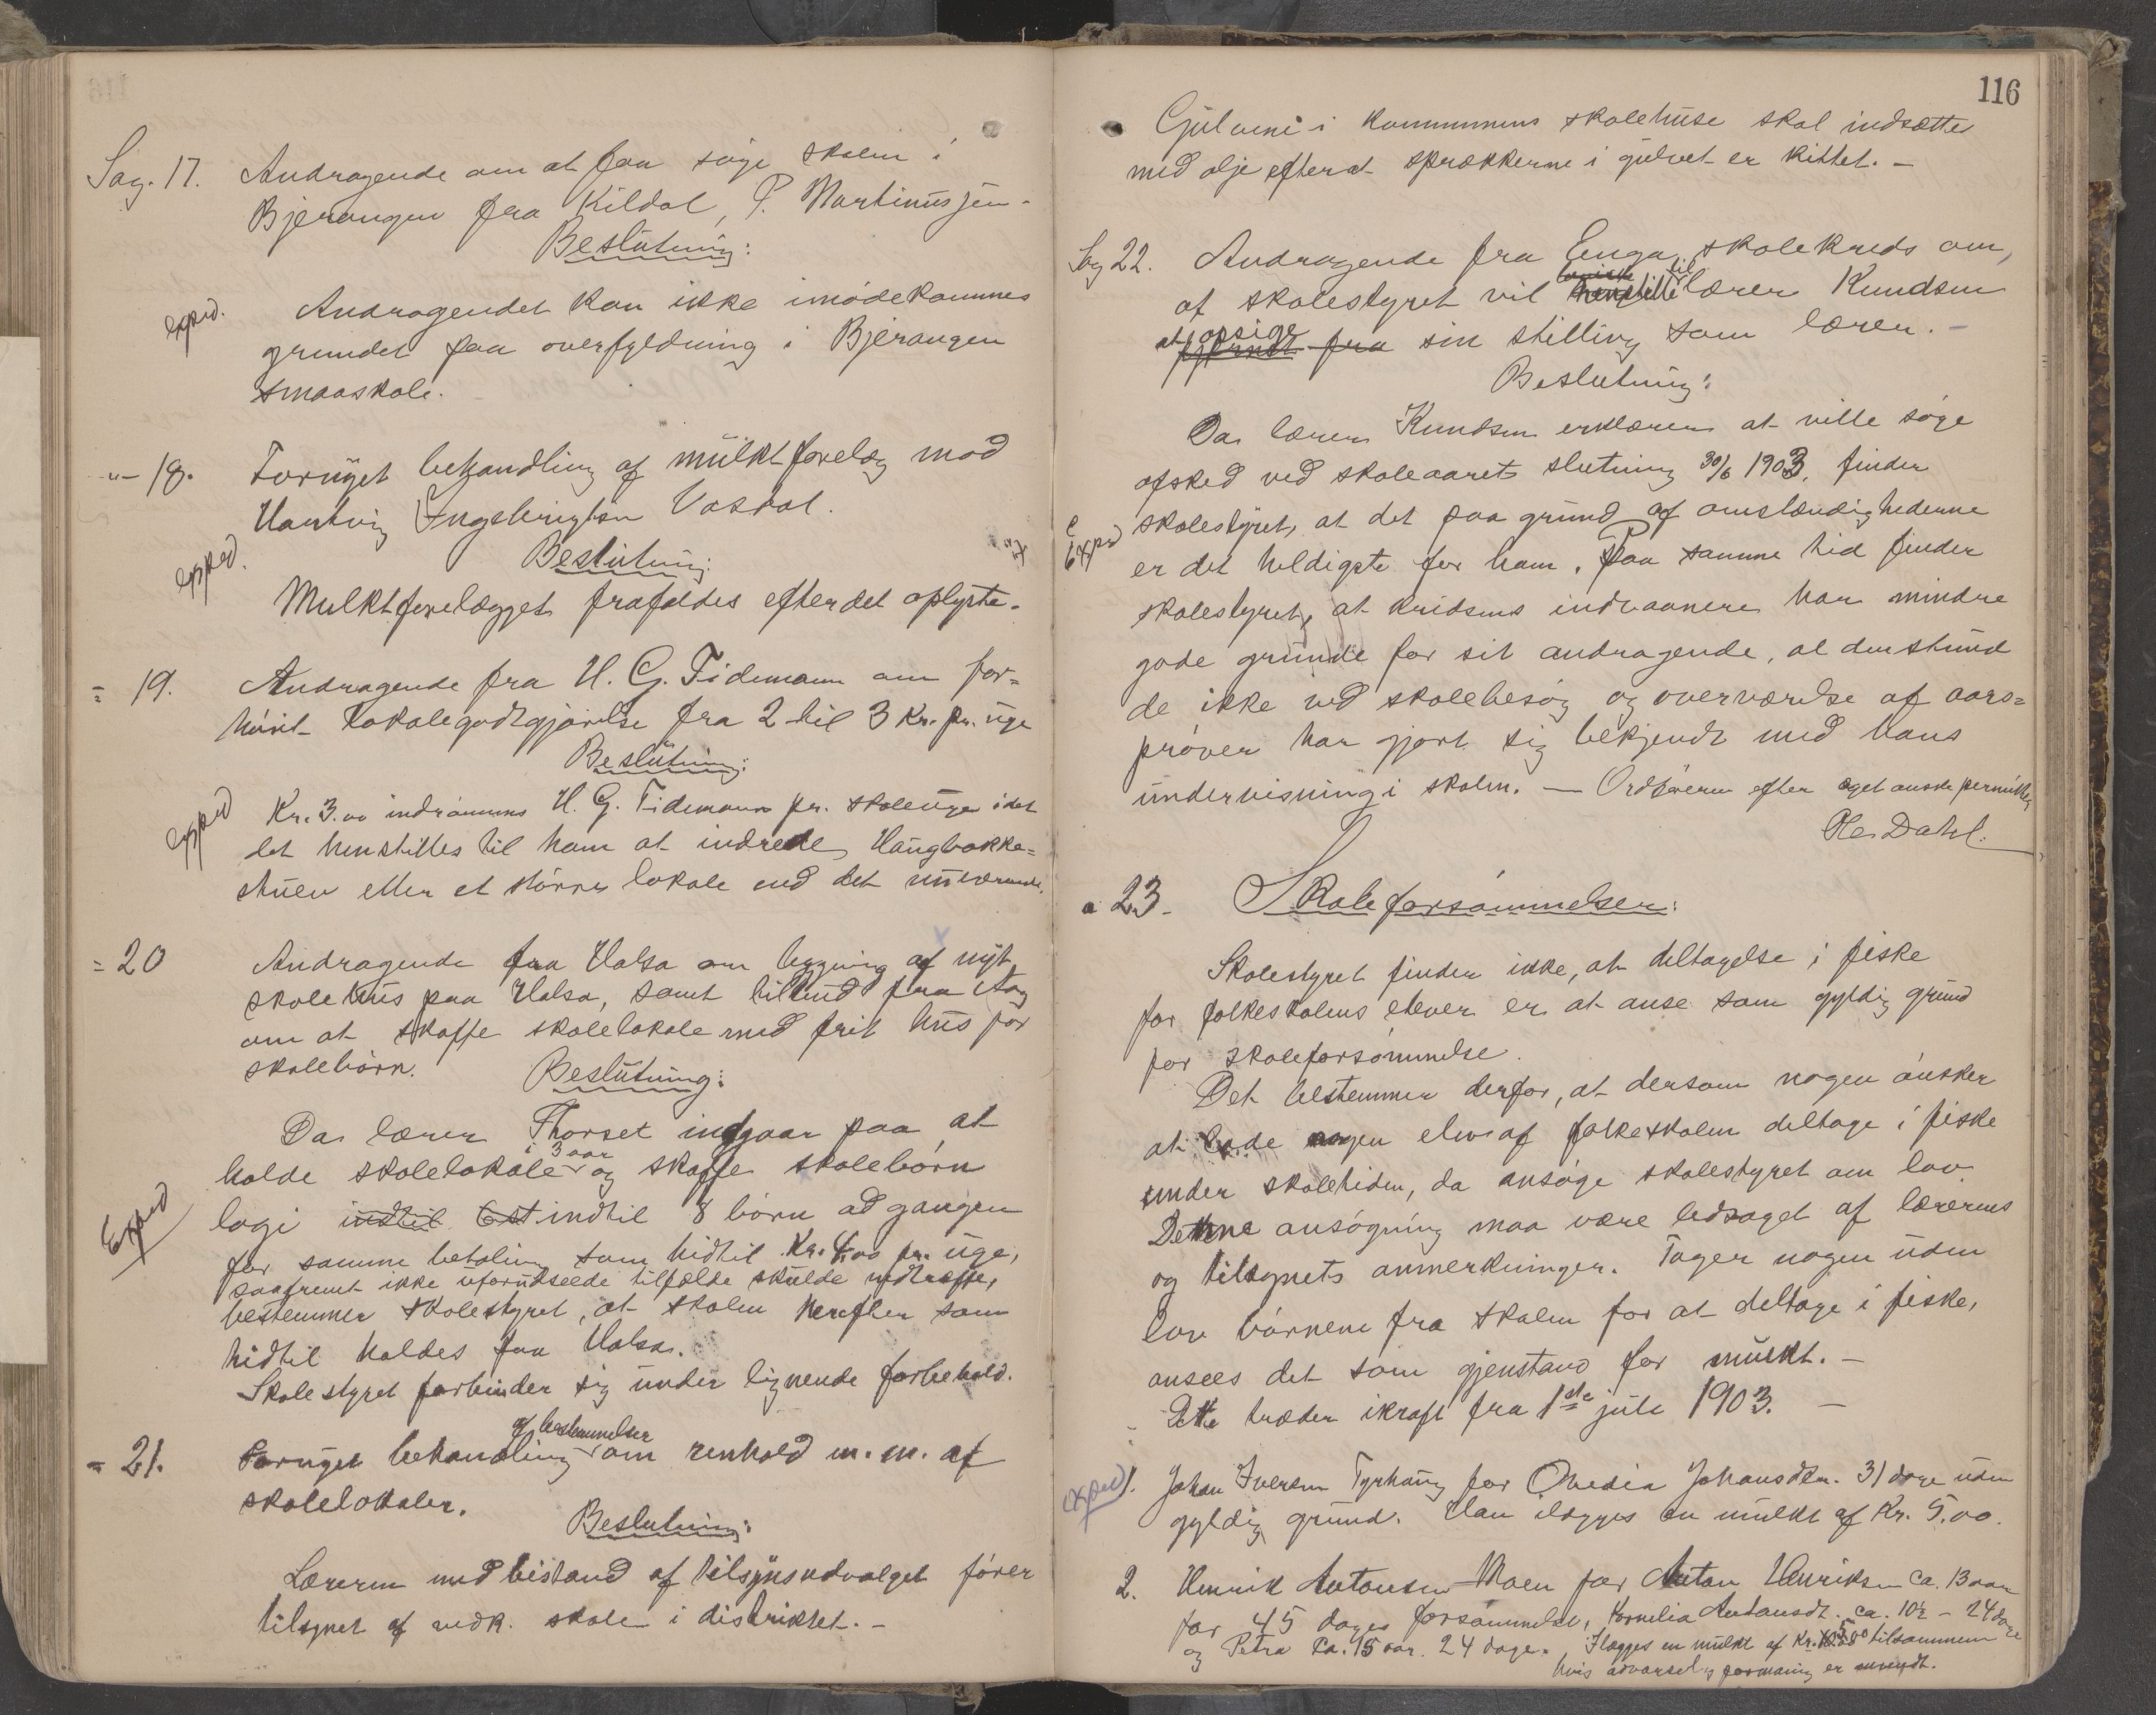 Sag. 17. Andragende om at faa søge skolen i
Bjerangen fra Kildal, P. Martinussen.
Beslutning:
exped. Andragendet kan ikke imødekommes
grundet paa overfyldning i Bjerangen
smaaskole.
"- 18. Fornyet behandling af mulktforelæg mod
Hartvig Ingebrigtsen Vasdal.
exped. Beslutning:
Mulktforelægget frafaldes efter det oplyste.
= 19. Andragende fra H. G. Tidemann om for=
høiet lokalegodtgjørelse fra 2 til 3 Kr. pr. uge
Beslutning:
exped Kr. 3.00 indrømmes H. G. Tidemann pr. skoleuge idet
det henstilles til ham at indrede Haugbakke=
stuen eller et større lokale end det nuværende.
= 20 Andragende fra Halsa om bygning af nyt
skolehus paa Halsa, samt tilbud fra Aag
om at skaffe skolelokale med frit hus for
skolebørn.
Beslutning:
Da lærer Thorset indgaar paa at
i 3 aar
holde skolelokale og skaffe skolebørn
Exped logi indtil 6 st indtil 8 børn ad gangen
for samme betaling som hidtil Kr. 4.00 pr. uge,
saafremt ikke uforudseede tilfælde skulde indtræffe,
bestemmer skolestyret, at skolen herefter som
hidtil holdes paa Halsa.
Skolestyret forbinder sig under lignende forbehold.
af bestemmelser
= 21. Fornyet behandling om renhold m. m. af
skolelokaler.
Beslutning:
Læreren med bistand af tilsynsudvalget fører
tilsynet af vedk. skole i distriktet. -
116
Gulvene i kommunens skolehuse skal indsættes
med olje efterat sprækkerne i gulvet er kittet. -
Sag 22. Andragende fra Enga skolekreds om,
til
at skolestyret vil henstille lærer Knudsen
at opsige
fjernet fra sin stilling som lærer. -
Beslutning:
Da lærer Knudsen erklærer at ville søge
afsked ved skoleaarets slutning 30/6 1903, finder
skolestyret, at det paa grund af omstændighederne
Exped er det heldigste for ham. Paa samme tid finder
skolestyret, at kredsens indvaanere har mindre
gode grunde for sit andragende, al den stund
de ikke ved skolebesøg og overværelse af aars=
prøver har gjort sig bekjendt med hans
undervisning i skolen. - Ordføreren efter eget ønske permittert
Ole Dahl.
" 23. Skoleforsømmelser:
Skolestyret finder ikke, at deltagelse i fiske
for folkeskolens elever er at anse som gyldig grund
for skoleforsømmelse.
Det bestemmer derfor, at dersom nogen ønsker
at lade nogen elev af folkeskolen deltage i fiske
under skoletiden, da ansøge skolestyret om lov.
Denne ansøgning maa være ledsaget af lærerens
og tilsynets anmerkninger. Tager nogen uden
lov børnene fra skolen for at deltage i fiske,
ansees det som gjenstand for mulkt. -
Dette træder ikraft fra 1ste juli 1903. -
exped 1. Johan Iversen Tyrhaug for Obedia Johansdtr. 31 dage uden
gyldig grund. Han ilægges en mulkt af Kr. 5.00.
2. Henrik Antonsen Moen for Anton Henriksen ca. 13 aar
for 45 dages forsømmelse, Kornelia Antonsdt. ca. 10½ - 24 dage
og Petra ca. 15 aar. 24 dage. Ilægges en mulkt af Kr. tilsammen
hvis advarsel og formaning er anvendt.